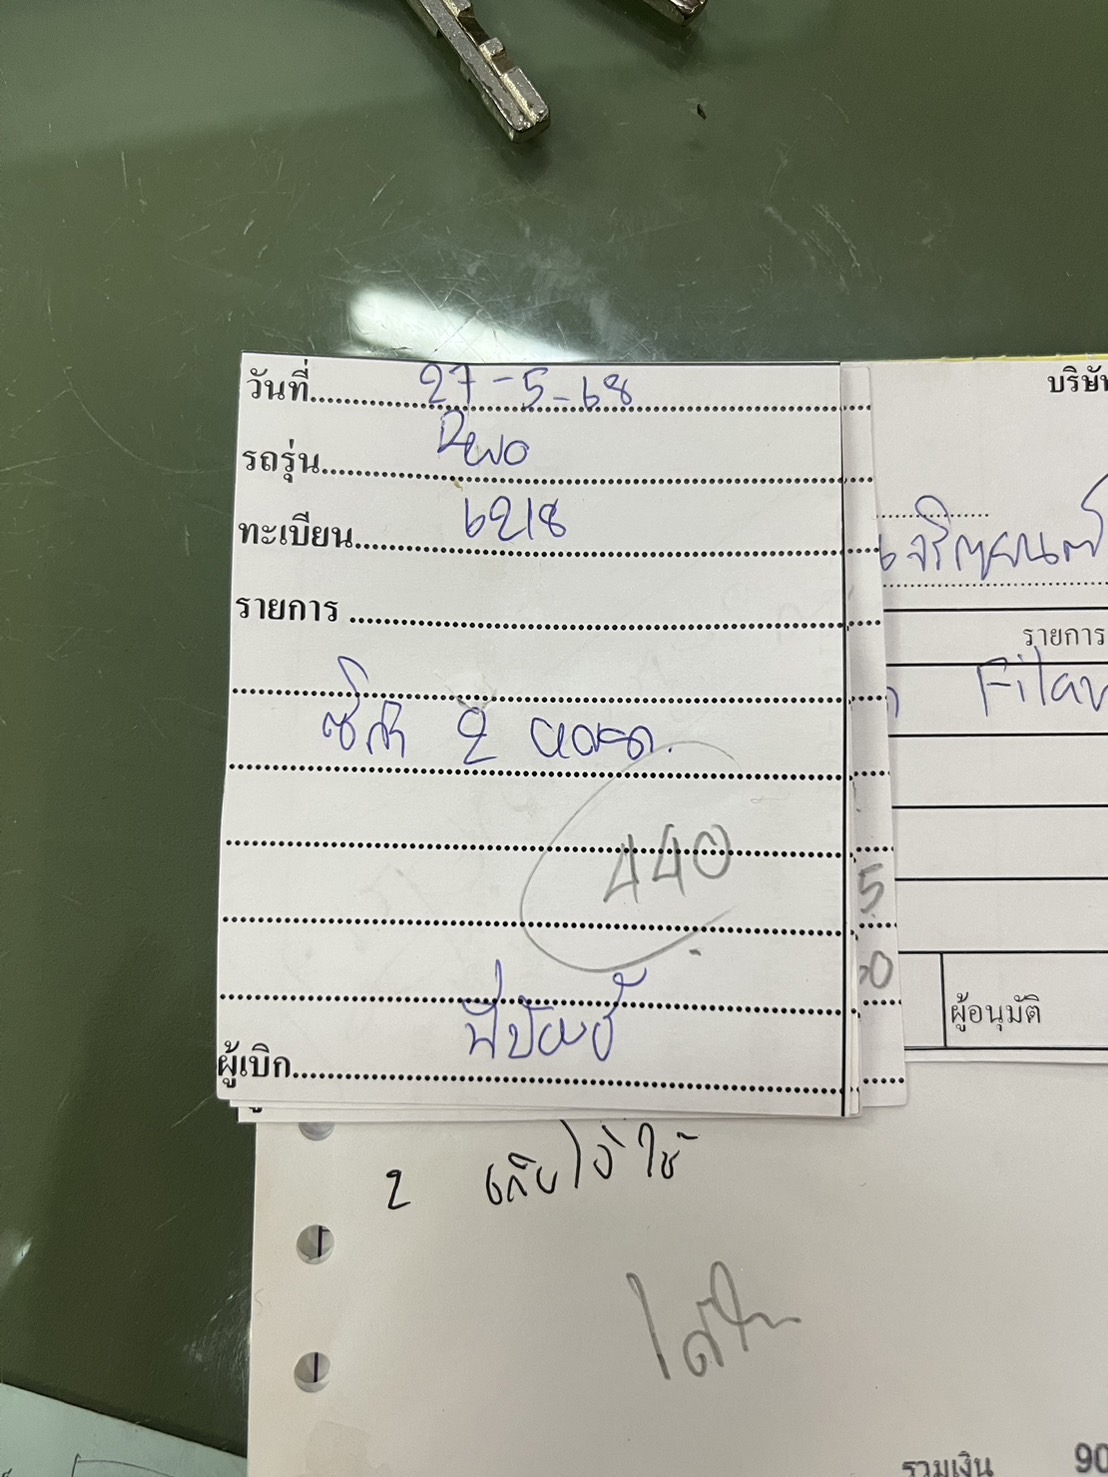 วันที่ 27-5-68
รถรุ่น Revo
ทะเบียน 6218
รายการ
ซิก้า 2 หลอด.
440
ผู้เบิก
บริษัท
เจริญยนต์
รายการ
5
50
ผู้อนุมัติ
2 เก็บไว้ใช้
รวมเงิน 90